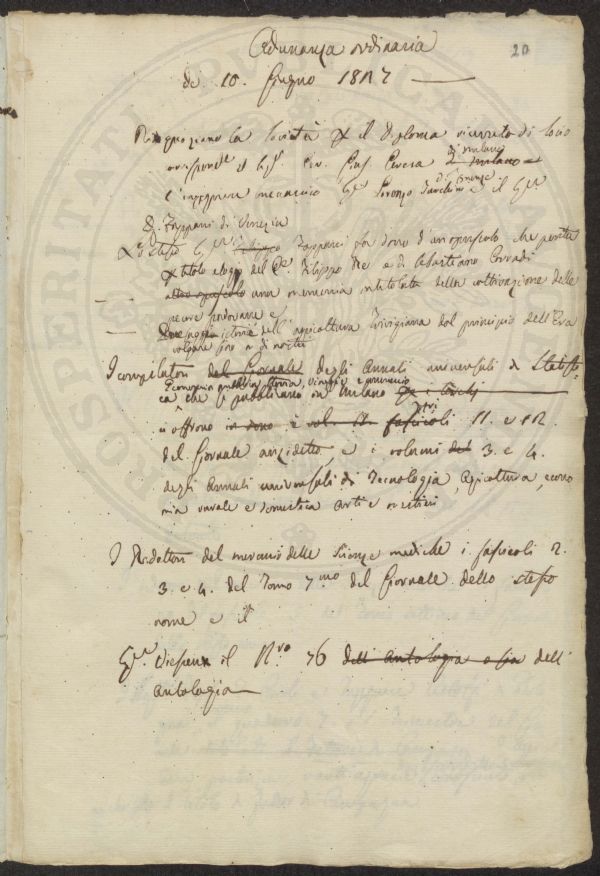 20
Adunanza ordinaria
de 10. Giugno 1827
Ringraziano la Società il Diploma ricevuto di Socio
di Milano
il Sig.r Cav. Prof. di Milano
di Firenze
l'ingegnere meccanico Sig.r Lorenzo e il Sig.r
D. Zappari di Venezia
Lo stesso Sig.r Zappari fa dono d'un opuscolo che porta
titolo elogio del Co. Filippo Re e di Sebastiano
altro opuscolo una memoria intitolata della coltivazione delle
pecore padovane e
storia dell'agricoltura Trivigiana dal principio dell'Era
volgare sino a dì nostri
I compilatori del Giornale degli Annali universali di Statisti-
Economia pubblica, storia, viaggi e commercio
ca che si pubblicano in Milano
offrono in dono i vol. fascicoli 11. e 12.
del Giornale anzidetto, e i volumi del 3. e 4.
degli Annali universali di Tecnologia, Agricoltura, econo
mia rurale e domestica arti e mestieri
I Redattori del mercurio delle Scienze mediche i fascicoli 2.
3. e 4. del Tomo 7.mo del Giornale dello stesso
nome e il
Sig.r Vieusseux il N.ro 76 dell'antologia o sia dell'
antologia